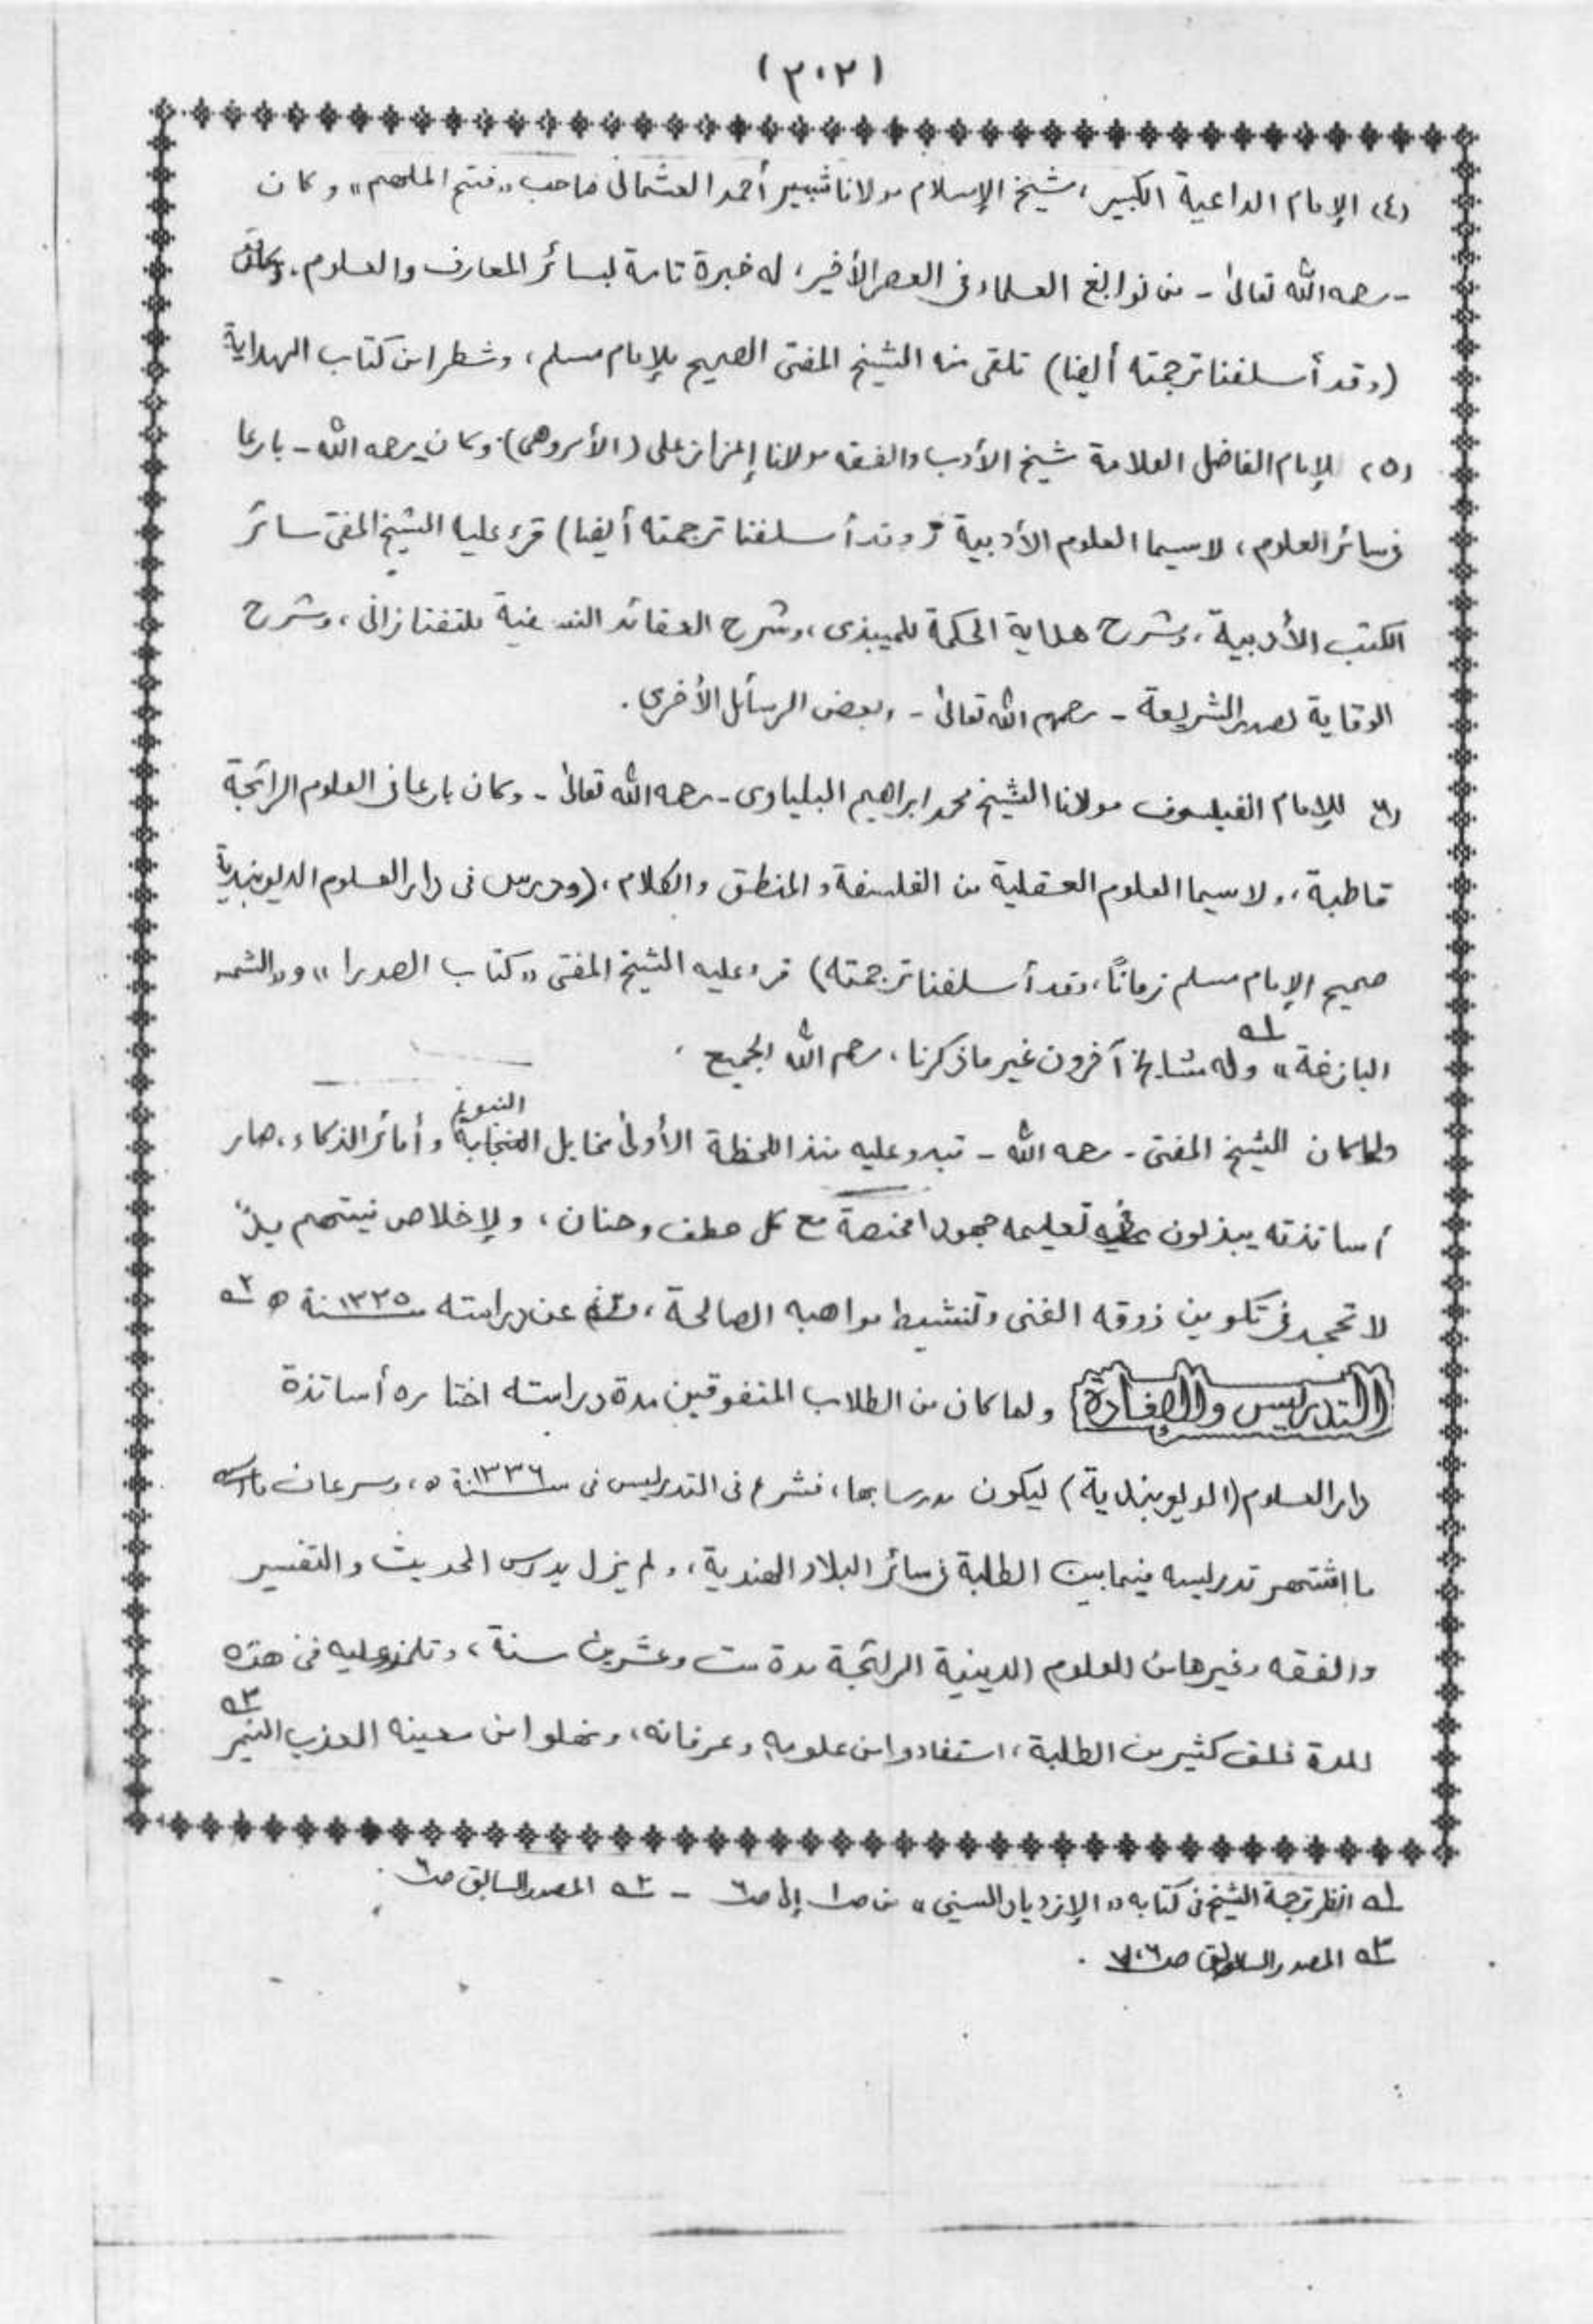 (٣٠٢)
(٤) الإمام الداعية الكبير، شيخ الإسلام مولانا شبير أحمد العثمانى صاحب «فتح الملهم» وكان
- رحمه الله تعالىٰ - من نوابغ العلماء فى العصر الأخير، له خبرة تامة لسائر المعارف والعلوم،
(وقد أسلفنا ترجمته أيضا) تلقى منه الشيخ المفتى الصحيح للإمام مسلم، وشطرا من كتاب الهداية
(٥) الإمام الفاضل العلامة شيخ الأدب والفقه مولانا إعزاز على (الأمروهى) وكان رحمه الله - بارعا
فى سائر العلوم، لاسيما العلوم الأدبية (وقد أسلفنا ترجمته أيضا) قرء عليه الشيخ المفتى سائر
الكتب الأدبية، وشرح هداية الحكمة للميبذى، وشرح العقائد النسفية للتفتازانى، وشرح
الوقاية لصدر الشريعة - رحمهم الله تعالىٰ - وبعض الرسائل الأخرى.
(٦) الإمام الفيلسوف مولانا الشيخ محمد ابراهيم البلياوى - رحمه الله تعالىٰ - وكان بارعا فى العلوم الرائجة
قاطبة، ولاسيما العلوم العقلية من الفلسفة والمنطق والكلام، (ودرس فى دار العلوم الديوبندية
صحيح الإمام مسلم زمانًا، وقد أسلفنا ترجمته) قرء عليه الشيخ المفتى «كتاب الصدرا» و«الشمس
البازغة» ١ه وله مشايخ آخرون غير ما ذكرنا، رحم الله الجميع.
ولما كان الشيخ المفتى - رحمه الله - تبدو عليه منذ اللحظة الأولىٰ مخايل النبوغ وأمائر الذكاء، صار
أساتذته يبذلون فى تعليمه جهودا مختصة مع كل عطف وحنان، ولإخلاص نيتهم يدٌ
لا تجحد فى تكوين ذوقه الفنى وتنشيط مواهبه الصالحة، عن دراسته سنة ١٣٣٥ ه ٢ه
التدريس والإفادة ولما كان من الطلاب المتفوقين مدة دراسته اختاره أساتذة
دار العلوم (الديوبندية) ليكون مدرسا بها، فشرع فى التدريس فى سنة ١٣٣٦ ه، وسرعان
ما اشتهر تدريسه فيما بين الطلبة فى سائر البلاد الهندية، ولم يزل يدرس الحديث والتفسير
والفقه وغيرها من العلوم الدينية الرائجة مدة ست وعشرين سنة، وتلمذ عليه فى هذه
المدة خلق كثير من الطلبة، استفادوا من علومه وعرفانه، ونهلوا من معينه العذب النمير ٣ه
١ه انظر ترجمة الشيخ فى كتابه «الإزدياد السنى» من ص١ إلى ص٦ - ٢ه المصدر السابق ص٦.
٣ه المصدر السابق ص٦،٧.